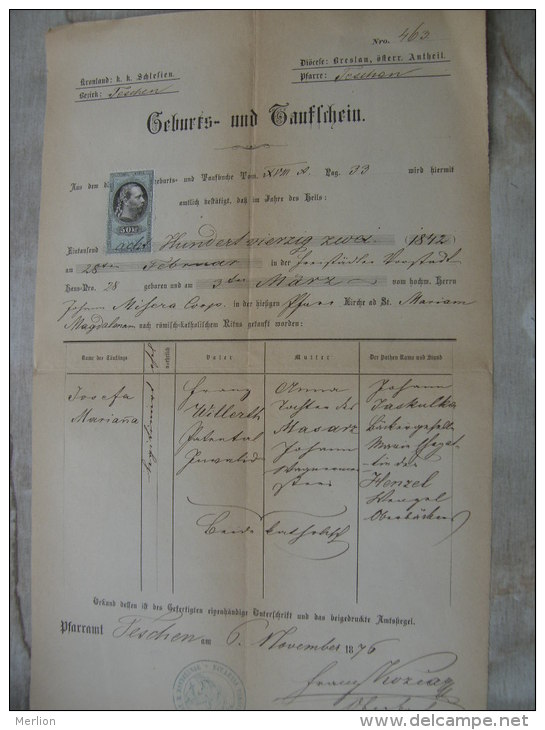 Nro. 463
Kronland: k. k. Schlesien.
Bezirk: Teschen
Diöcese: Breslau, österr. Antheil.
Pfarre: Teschen
Geburts- und Taufschein.
Aus dem Geburts- und Taufbuche Tom. Pag. 33 wird hiermit
amtlich bestätigt, daß im Jahre des Heils:
Eintausend acht Hundert vierzig zwei (1842)
am 28ten Februar in der Vorstadt
Haus-Nro. 28 geboren und am 3ten März vom hochw. Herrn
Johann Misera Coop. in der hiesigen Pfarr Kirche ad St. Mariam
Magdalenam nach römisch-katholischen Ritus getauft worden:
Name des Täuflings
Vater
Mutter
Der Pathen Name und Stand
Josefa
Mariana
Franz
Willerth
Patental
Invalide
Anna
Tochter des
Masarz
Johann
Johann
Jaskulka
Bäckergeselle
Maria
Henzel
Wenzel
Oberbäckers
Beide katholisch
Urkund dessen ist des Gefertigten eigenhändige Unterschrift und das beigedruckte Amtssiegel.
Pfarramt Teschen am 6. November 1876
Franz
50 kr
Merlion
www.delcampe.net